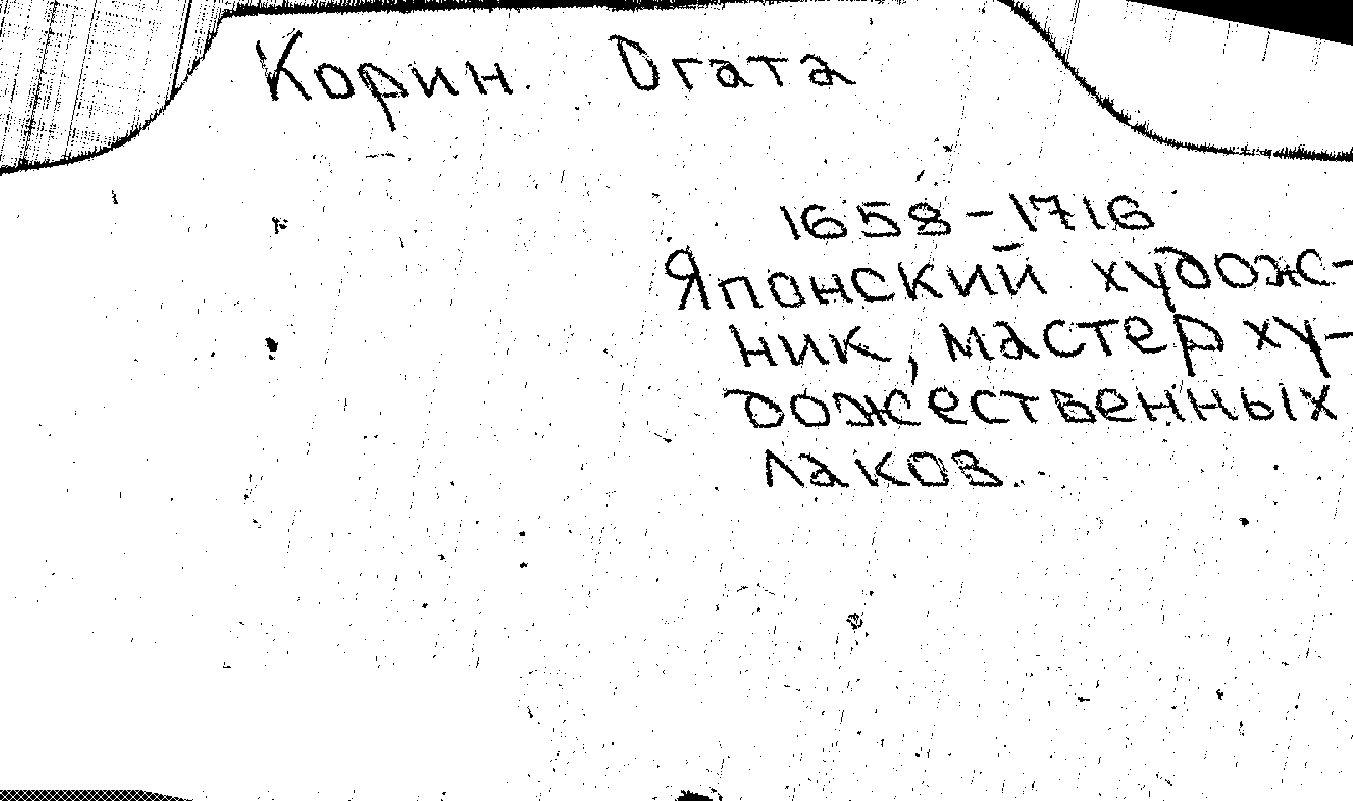 Корин. Огата
1658-1716
Японский худож-
ник, мастер ху-
дожественных
лаков.